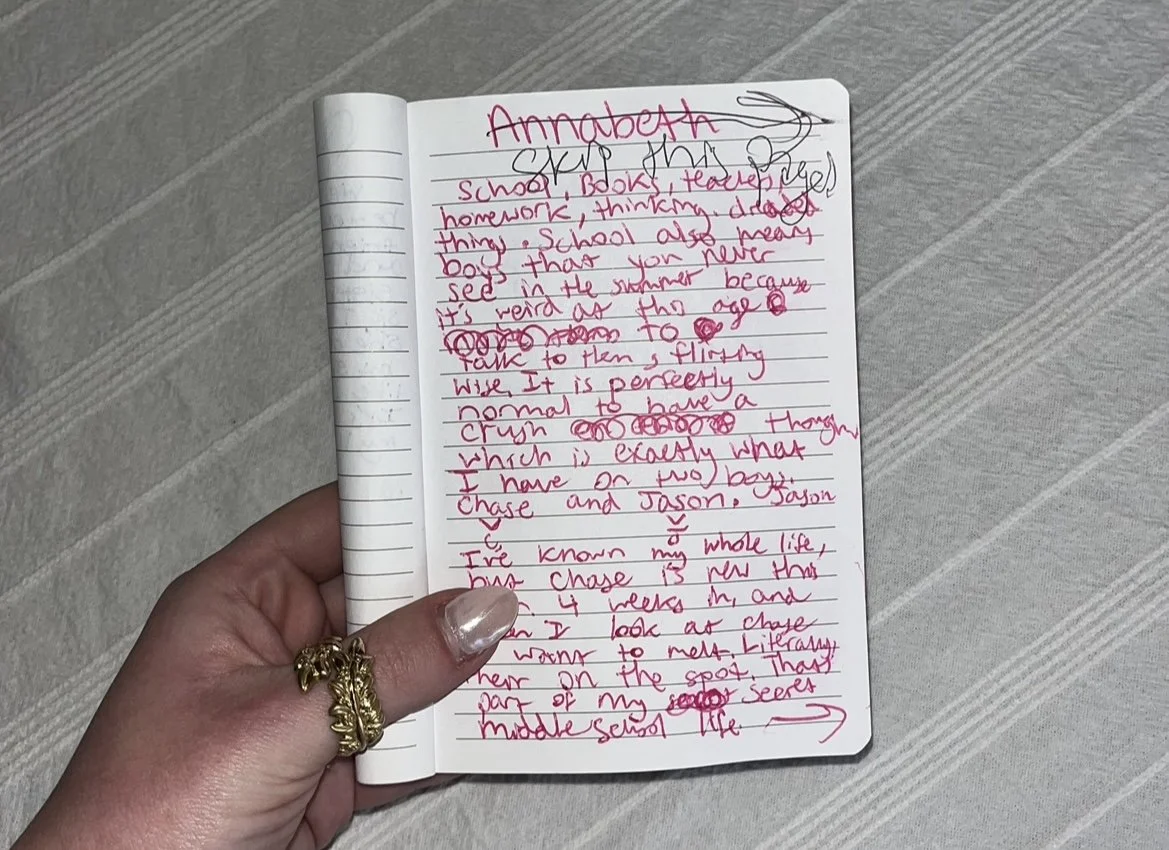 Annabeth
Skip this page!
School, Books, teachers,
homework, thinking.
things. School also means
boys that you never
see in the summer because
it's weird at this age
to
talk to them, flirting
wise. It is perfectly
normal to have a
crush though
which is exactly what
I have on two boys.
Chase and Jason. Jason
I've known my whole life,
but Chase is new this
4 weeks in, and
I look at Chase
want to melt. Literally,
here on the spot. That's
part of my secret
middle school life